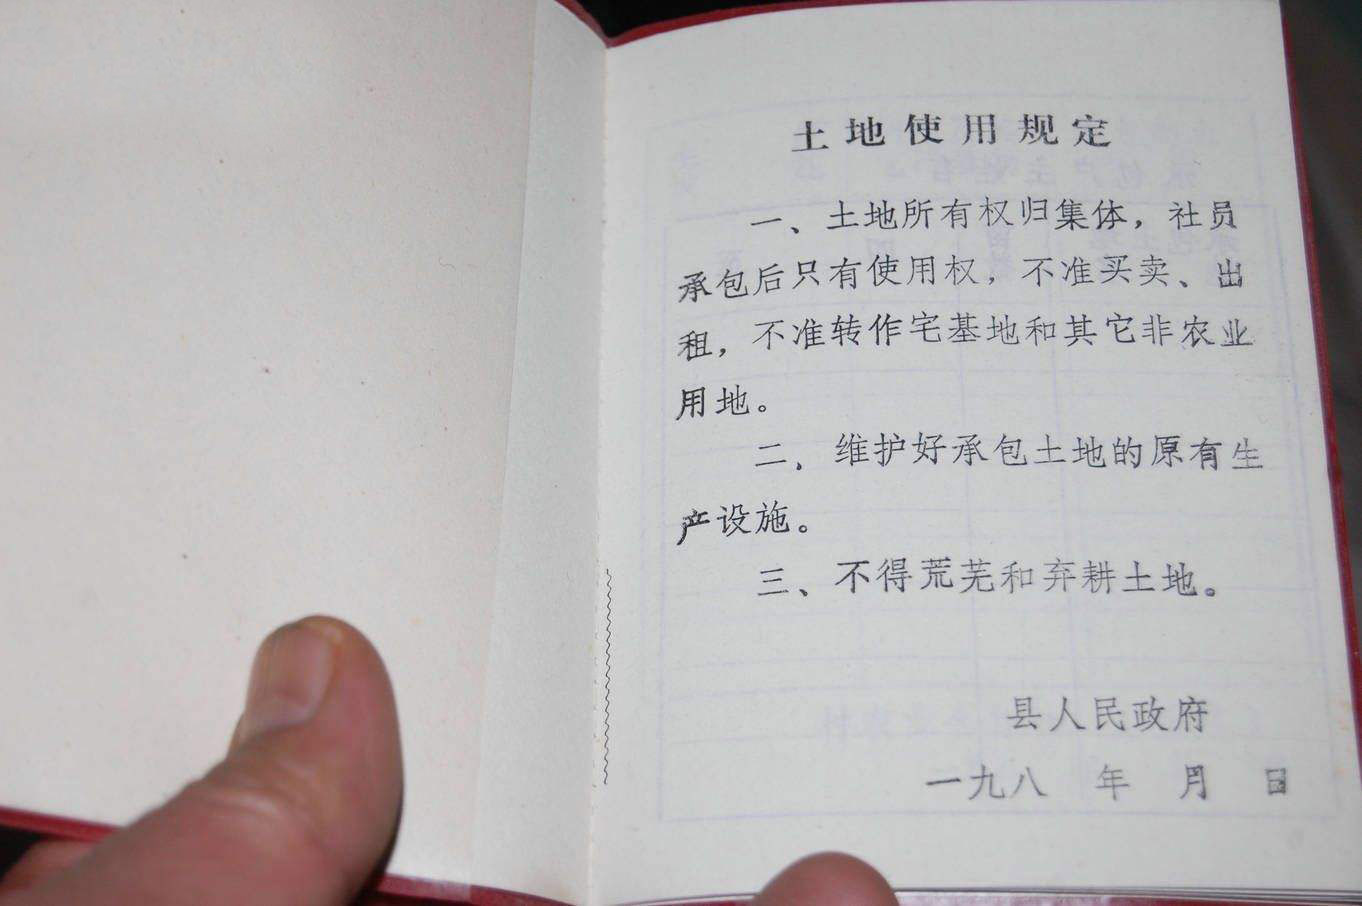 土地使用规定
一、土地所有权归集体，社员
承包后只有使用权，不准买卖、出
租，不准转作宅基地和其它非农业
用地。
二、维护好承包土地的原有生
产设施。
三、不得荒芜和弃耕土地。
县人民政府
一九八 年 月 日